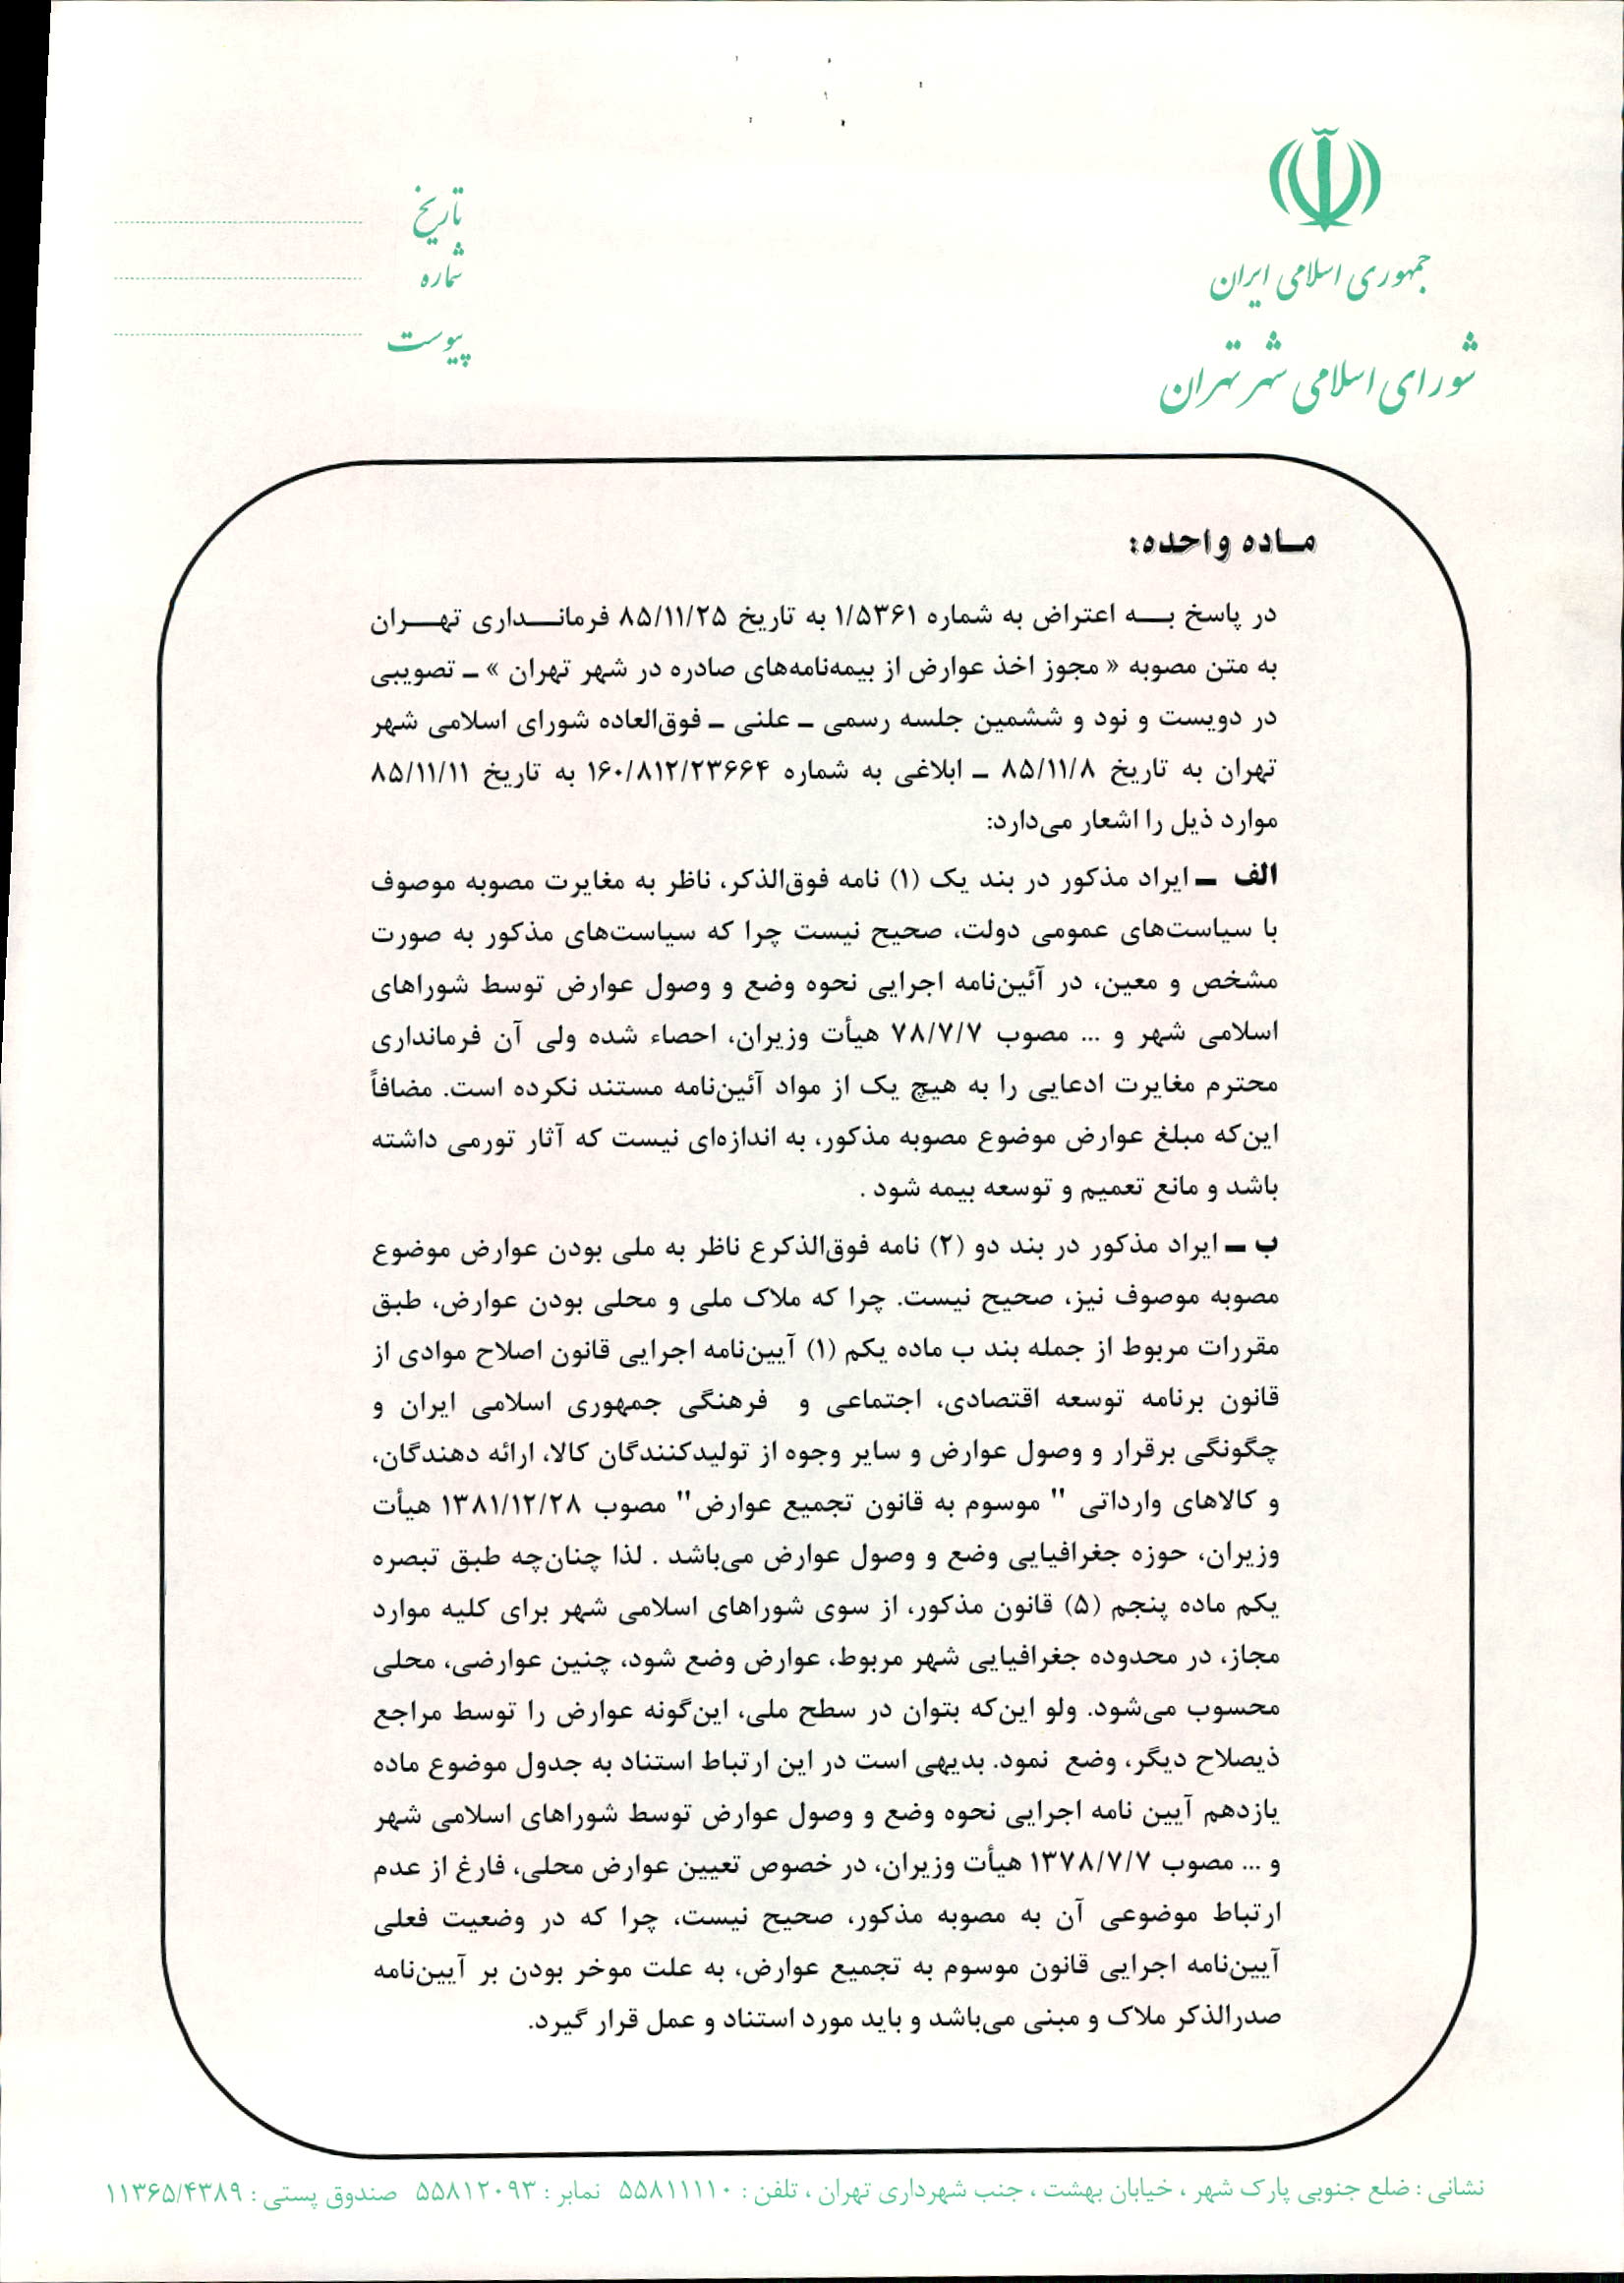 جمهوری اسلامی ایران
شورای اسلامی شهر تهران
تاریخ
شماره
پیوست
مـاده واحده:
در پاسخ بـه اعتراض به شماره ۱/۵۳۶۱ به تاریخ ۸۵/۱۱/۲۵ فرمانـداری تهـران
به متن مصوبه « مجوز اخذ عوارض از بیمه‌نامه‌های صادره در شهر تهران » ـ تصویبی
در دویست و نود و ششمین جلسه رسمی ـ علنی ـ فوق‌العاده شورای اسلامی شهر
تهران به تاریخ ۸۵/۱۱/۸ ـ ابلاغی به شماره ۱۶۰/۸۱۲/۲۳۶۶۴ به تاریخ ۸۵/۱۱/۱۱
موارد ذیل را اشعار می‌دارد:
الف ـ ایراد مذکور در بند یک (۱) نامه فوق‌الذکر، ناظر به مغایرت مصوبه موصوف
با سیاست‌های عمومی دولت، صحیح نیست چرا که سیاست‌های مذکور به صورت
مشخص و معین، در آئین‌نامه اجرایی نحوه وضع و وصول عوارض توسط شوراهای
اسلامی شهر و ... مصوب ۷۸/۷/۷ هیأت وزیران، احصاء شده ولی آن فرمانداری
محترم مغایرت ادعایی را به هیچ یک از مواد آئین‌نامه مستند نکرده است. مضافاً
این‌که مبلغ عوارض موضوع مصوبه مذکور، به اندازه‌ای نیست که آثار تورمی داشته
باشد و مانع تعمیم و توسعه بیمه شود .
ب ـ ایراد مذکور در بند دو (۲) نامه فوق‌الذکرع ناظر به ملی بودن عوارض موضوع
مصوبه موصوف نیز، صحیح نیست. چرا که ملاک ملی و محلی بودن عوارض، طبق
مقررات مربوط از جمله بند ب ماده یکم (۱) آیین‌نامه اجرایی قانون اصلاح موادی از
قانون برنامه توسعه اقتصادی، اجتماعی و فرهنگی جمهوری اسلامی ایران و
چگونگی برقرار و وصول عوارض و سایر وجوه از تولیدکنندگان کالا، ارائه دهندگان،
و کالاهای وارداتی " موسوم به قانون تجمیع عوارض" مصوب ۱۳۸۱/۱۲/۲۸ هیأت
وزیران، حوزه جغرافیایی وضع و وصول عوارض می‌باشد . لذا چنان‌چه طبق تبصره
یکم ماده پنجم (۵) قانون مذکور، از سوی شوراهای اسلامی شهر برای کلیه موارد
مجاز، در محدوده جغرافیایی شهر مربوط، عوارض وضع شود، چنین عوارضی، محلی
محسوب می‌شود. ولو این‌که بتوان در سطح ملی، این‌گونه عوارض را توسط مراجع
ذیصلاح دیگر، وضع نمود. بدیهی است در این ارتباط استناد به جدول موضوع ماده
یازدهم آیین نامه اجرایی نحوه وضع و وصول عوارض توسط شوراهای اسلامی شهر
و ... مصوب ۱۳۷۸/۷/۷ هیأت وزیران، در خصوص تعیین عوارض محلی، فارغ از عدم
ارتباط موضوعی آن به مصوبه مذکور، صحیح نیست، چرا که در وضعیت فعلی
آیین‌نامه اجرایی قانون موسوم به تجمیع عوارض، به علت موخر بودن بر آیین‌نامه
صدرالذکر ملاک و مبنی می‌باشد و باید مورد استناد و عمل قرار گیرد.
نشانی : ضلع جنوبی پارک شهر ، خیابان بهشت ، جنب شهرداری تهران ، تلفن : ۵۵۸۱۱۱۱۰ نمابر : ۵۵۸۱۲۰۹۳ صندوق پستی : ۱۱۳۶۵/۴۳۸۹